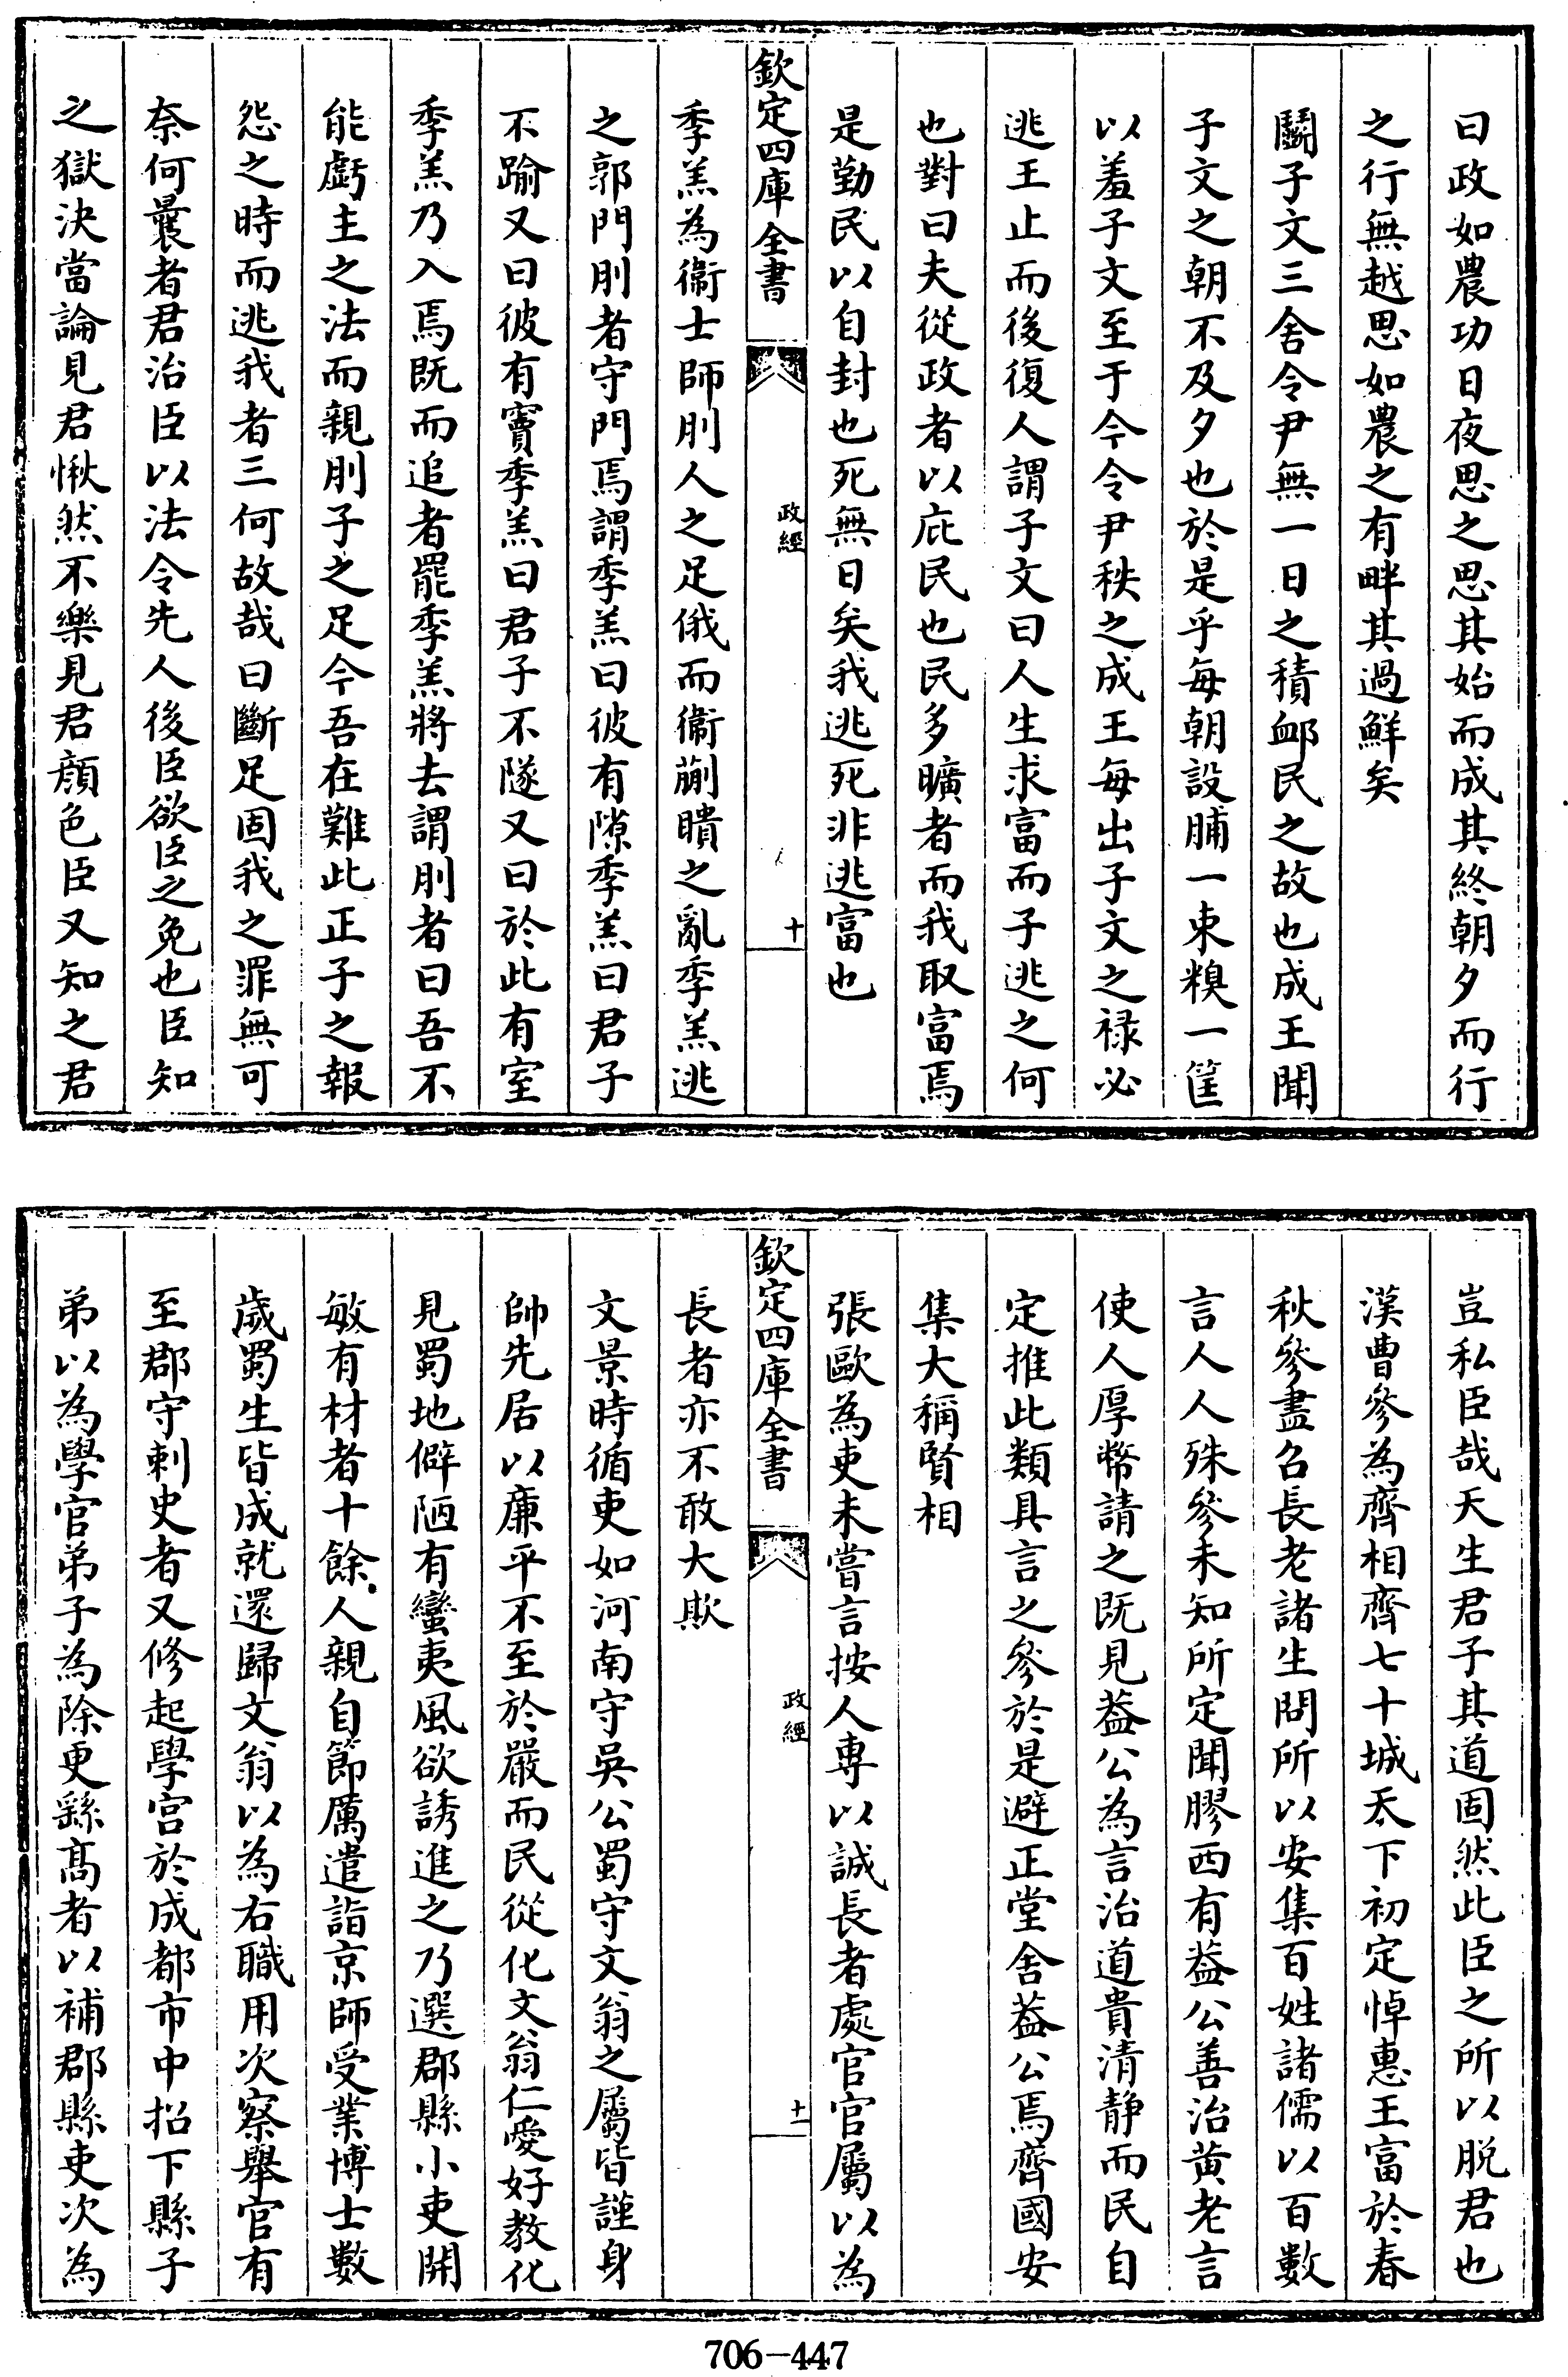 曰政如農功日夜思之思其始而成其終朝夕而行
之行無越思如農之有畔其過鮮矣
鬭子文三舍令尹無一日之積䘏民之故也成王聞
子文之朝不及夕也於是乎每朝設脯一束糗一筐
以羞子文至于今令尹秩之成王每出子文之祿必
逃王止而後復人謂子文曰人生求富而子逃之何
也對曰夫從政者以庇民也民多曠者而我取富焉
是勤民以自封也死無日矣我逃死非逃富也
欽定四庫全書
政經
十
季羔為衞士師刖人之足俄而衞蒯聵之亂季羔逃
之郭門刖者守門焉謂季羔曰彼有隙季羔曰君子
不踰又曰彼有竇季羔曰君子不隧又曰於此有室
季羔乃入焉既而追者罷季羔將去謂刖者曰吾不
能虧主之法而親刖子之足今吾在難此正子之報
怨之時而逃我者三何故哉曰斷足固我之罪無可
奈何曩者君治臣以法令先人後臣欲臣之免也臣知
之獄決當論見君愀然不樂見君顔色臣又知之君
豈私臣哉天生君子其道固然此臣之所以脱君也
漢曹參為齊相齊七十城天下初定悼惠王富於春
秋參盡召長老諸生問所以安集百姓諸儒以百數
言人人殊參未知所定聞膠西有葢公善治黄老言
使人厚幣請之既見葢公為言治道貴清静而民自
定推此類具言之參於是避正堂舍葢公焉齊國安
集大稱賢相
張歐為吏未嘗言按人専以誠長者處官官屬以為
欽定四庫全書
政經
十一
長者亦不敢大欺
文景時循吏如河南守吳公蜀守文翁之屬皆謹身
帥先居以廉平不至於嚴而民從化文翁仁愛好教化
見蜀地僻陋有蠻夷風欲誘進之乃選郡縣小吏開
敏有材者十餘人親自節厲遣詣京師受業博士數
歲蜀生皆成就還歸文翁以為右職用次察舉官有
至郡守刺史者又修起學宫於成都市中招下縣子
弟以為學官弟子為除更繇髙者以補郡縣吏次為
706-447